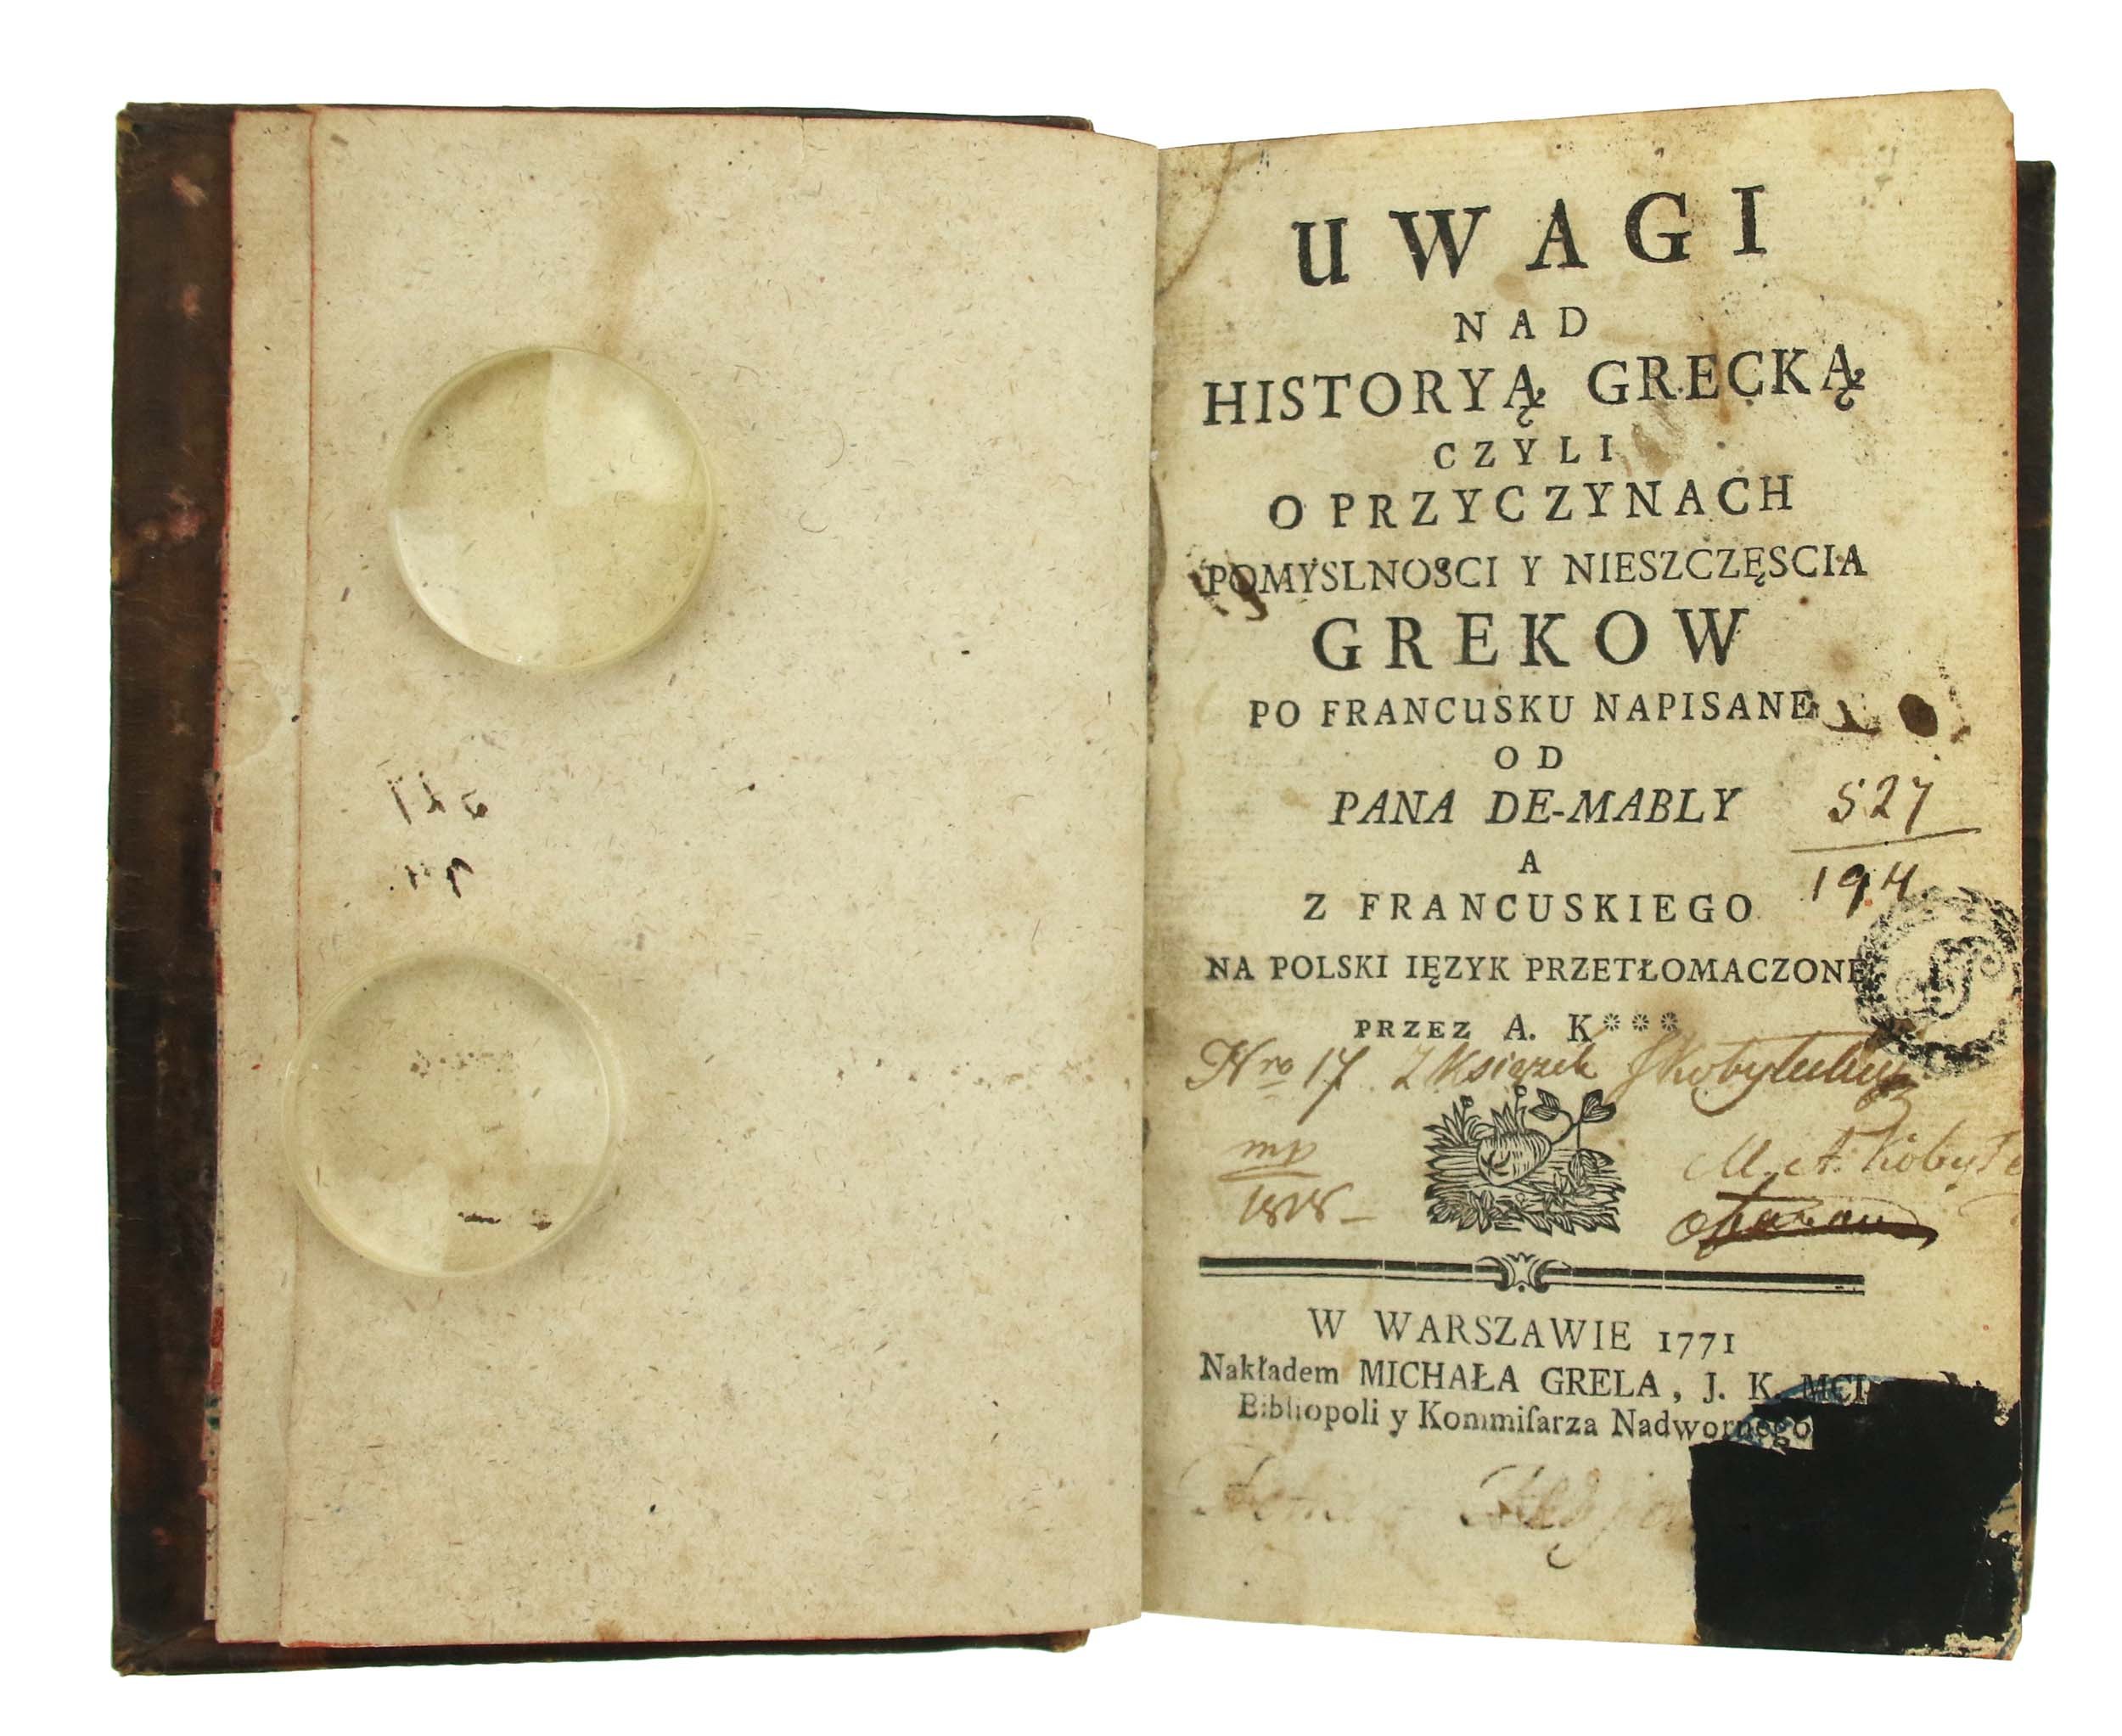 UWAGI
NAD
HISTORYĄ GRECKĄ
CZYLI
O PRZYCZYNACH
POMYSLNOSCI Y NIESZCZĘSCIA
GREKOW
PO FRANCUSKU NAPISANE
OD
PANA DE-MABLY
527
A
194
Z FRANCUSKIEGO
NA POLSKI IĘZYK PRZETŁOMACZONE
PRZEZ A. K***
Nro 17 Z Książek
mp
M. A. Kobyłe
1818
W WARSZAWIE 1771
Nakładem MICHAŁA GRELA, J. K. MCI
Bibliopoli y Kommiſarza Nadwornego